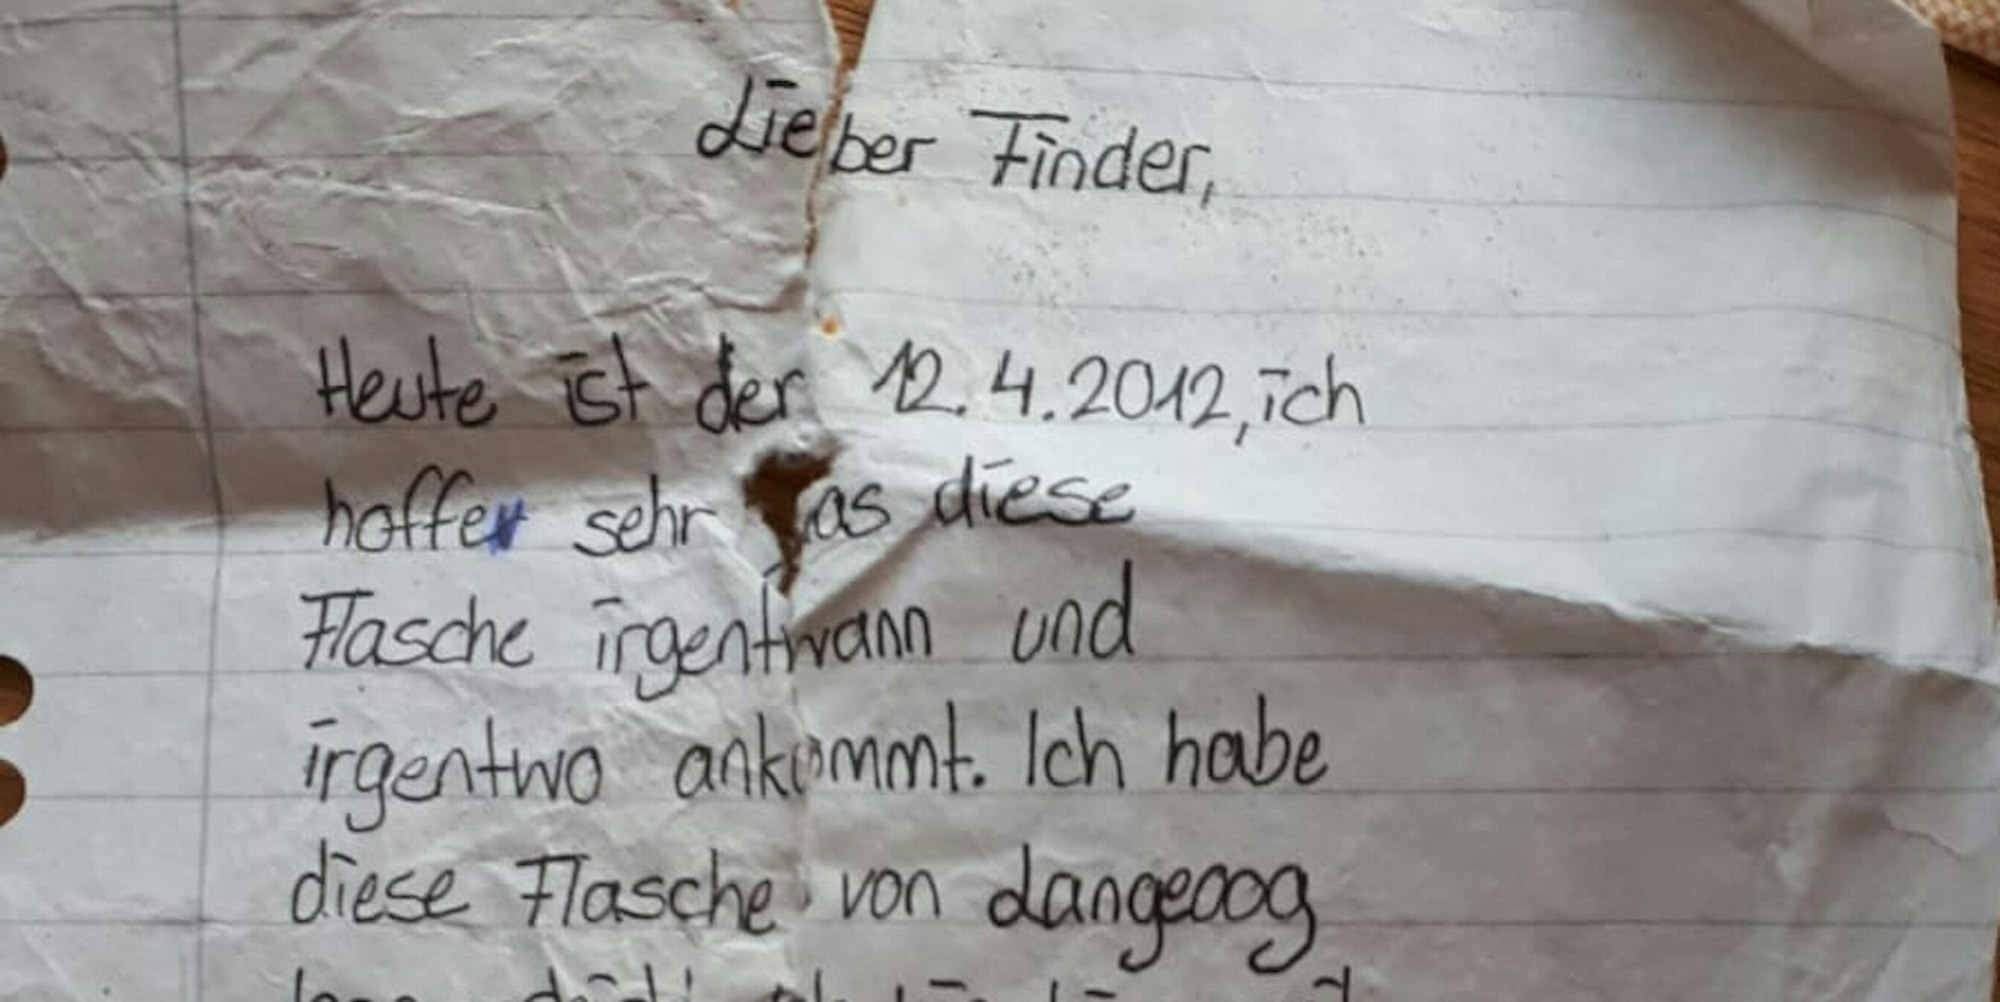 Lieber Finder,
Heute ist der 12.4.2012, ich
hoffe sehr as diese
Flasche irgentwann und
irgentwo ankommt. Ich habe
diese Flasche von Langeoog